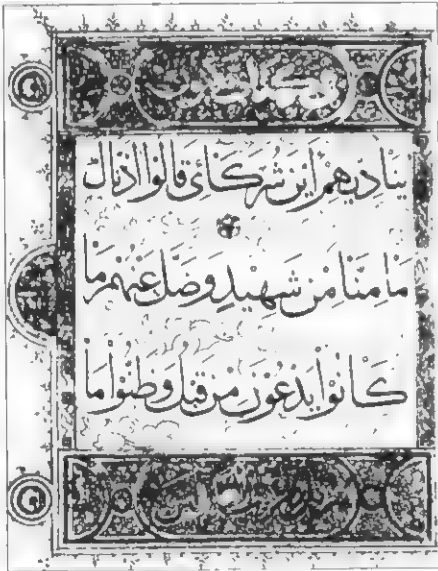 يناديهم اين شركاى قالوا اذناك
مَا مِنَّا مِن شَهِيدٍ وَضَلَّ عَنْهُم مَا
كَانُوا يَدْعُونَ مِن قَبْلُ وَظَنُّوا مَا